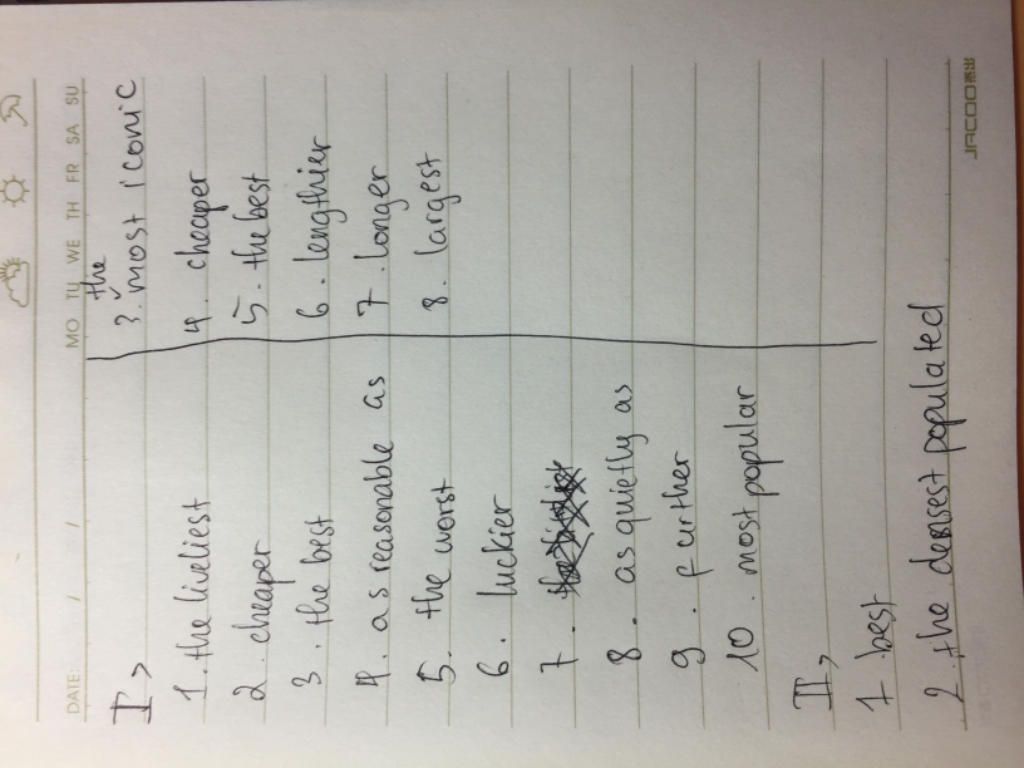 MO TU WE TH FR SA SU
DATE: / /
I>
1. the liveliest
2. cheaper
3. the best
4. as reasonable as
5. the worst
6. luckier
7.
8. as quietly as
9. further
10. most popular
II>
1. best
2. the densest populated
the
3. most iconic
4. cheaper
5. the best
6. lengthier
7. longer
8. largest
JACOO